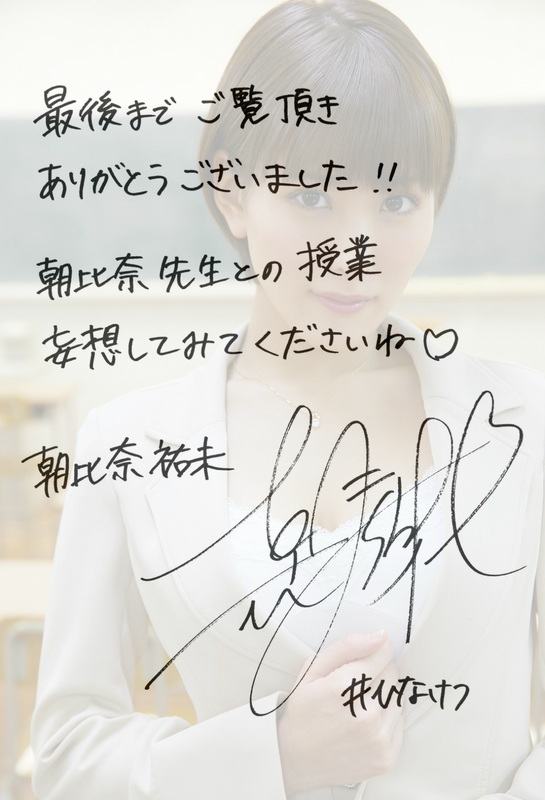 最後まで ご覧頂き
ありがとうございました!!
朝比奈先生との授業
妄想してみてくださいね♡
朝比奈祐未
#ひなけつ